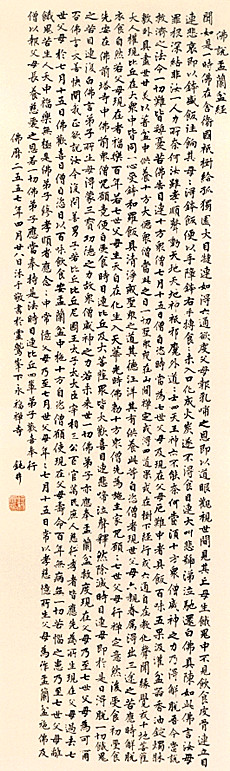 佛說盂蘭盆經
聞如是一時佛在舍衛國祇樹給孤獨園大目犍連始得六通欲度父母報乳哺之恩即以道眼觀視世間見其亡母生餓鬼中不見飲食皮骨連立目
連悲哀即以鉢盛飯往餉其母母得鉢飯便以左手障鉢右手摶食食未入口化成火炭遂不得食目連大叫悲號涕泣馳還白佛具陳如此佛言汝母
罪根深結非汝一人力所奈何汝雖孝順聲動天地天神地祇邪魔外道道士四天王神亦不能奈何當須十方眾僧威神之力乃得解脫吾今當說
救濟之法令一切難皆離憂苦佛告目連十方眾僧七月十五日僧自恣時當為七世父母及現在父母厄難中者具飯百味五果汲灌盆器香油錠燭床
敷臥具盡世甘美以著盆中供養十方大德眾僧當此之日一切聖眾或在山間禪定或得四道果或在樹下經行或六通自在教化聲聞緣覺或十地菩薩
大人權現比丘在大眾中皆同一心受鉢和羅飯具清淨戒聖眾之道其德汪洋其有供養此等自恣僧者現世父母六親眷屬得出三途之苦應時解脫
衣食自然若父母現在者福樂百年若七世父母生天自在化生入天華光時佛勅十方眾僧先為施主家咒願七世父母行禪定意然後受食初受食
時先安在佛前塔寺中佛前眾僧咒願竟便自受食時目連比丘及大菩薩眾皆大歡喜目連悲啼泣聲釋然除滅時目連母即於是日得脫一劫餓鬼
之苦目連復白佛言弟子所生母得蒙三寶功德之力眾僧威神之力故若未來世一切佛弟子亦應奉盂蘭盆救度現在父母乃至七世父母可為爾
否佛言大善快問我正欲說汝今復問善男子若比丘比丘尼國王太子大臣宰相三公百官萬民庶人行慈孝者皆應先為所生現在父母過去七
世父母於七月十五日佛歡喜日僧自恣日以百味飯食安盂蘭盆中施十方自恣僧願使現在父母壽命百年無病無一切苦惱之患乃至七世父母離
餓鬼苦生人天中福樂無極是佛弟子修孝順者應念念中常憶父母乃至七世父母年年七月十五日常以孝慈憶所生父母為作盂蘭盆施佛及
僧以報父母長養慈愛之恩若一切佛弟子應當奉持是法時目連比丘四輩弟子歡喜奉行
佛曆二五五七年四月廿八日沐手敬書於靈鷲峯下永福禪寺